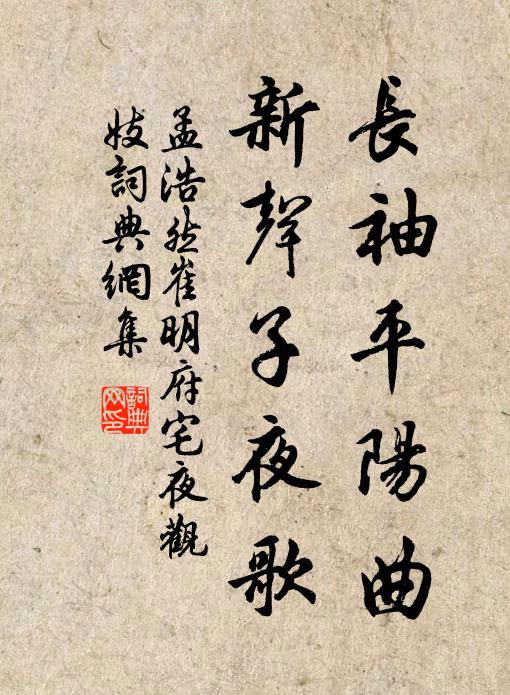 長袖平陽曲
新聲子夜歌
孟浩然崔明府宅夜觀
妓詞典網集
詞典
网印